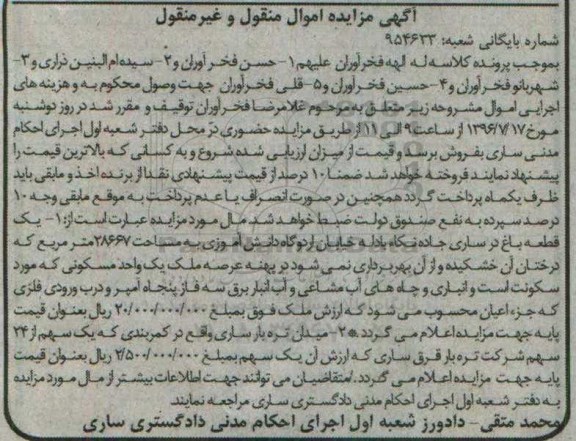 آگهی مزایده اموال منقول و غیرمنقول
شماره بایگانی شعبه: ۹۵۴۶۳۳
بموجب پرونده کلاسه له الهه فخرآوران علیهم ۱- حسن فخرآوران و ۲- سیده ام البنین ذراری و ۳-
شهربانو فخرآوران و ۴- حسین فخرآوران و ۵- قلی فخرآوران جهت وصول محکوم به و هزینه های
اجرایی اموال مشروحه زیر متعلق به مرحوم غلامرضا فخرآوران توقیف و مقرر شد در روز دوشنبه
مورخ ۱۳۹۶/۷/۱۷ از ساعت ۹ الی ۱۱ از طریق مزایده حضوری در محل دفتر شعبه اول اجرای احکام
مدنی ساری بفروش برسد و قیمت از میزان ارزیابی شده شروع و به کسانی که بالاترین قیمت را
پیشنهاد نمایند فروخته خواهد شد ضمنا ۱۰ درصد از قیمت پیشنهادی نقدا از برنده اخذ و مابقی باید
ظرف یکماه پرداخت گردد همچنین در صورت انصراف یا عدم پرداخت به موقع مابقی وجه ۱۰
درصد سپرده به نفع صندوق دولت ضبط خواهد شد مال مورد مزایده عبارت است از: ۱- یک
قطعه باغ در ساری جاده نکاه بادله خیابان اردوگاه دانش آموزی به مساحت ۲۸۶۶۷ متر مربع که
درختان آن خشکیده و از آن بهره برداری نمی شود در پهنه عرصه ملک یک واحد مسکونی که مورد
سکونت است و انباری و چاه های آب مشاعی و آب انبار برق سه فاز پنجاه آمپر و درب ورودی فلزی
که جزء اعیان محسوب می شود که ارزش ملک فوق بمبلغ ۲۰/۰۰۰/۰۰۰/۰۰۰ ریال بعنوان قیمت
پایه جهت مزایده اعلام می گردد *۲- میدان تره بار ساری واقع در کمربندی که یک سهم از ۲۴
سهم شرکت تره بار قرق ساری که ارزش آن یک سهم بمبلغ ۲/۵۰۰/۰۰۰/۰۰۰ ریال بعنوان قیمت
پایه جهت مزایده اعلام می گردد./متقاضیان می توانند جهت اطلاعات بیشتر از مال مورد مزایده
به دفتر شعبه اول اجرای احکام مدنی دادگستری ساری مراجعه نمایند.
محمد متقی- دادورز شعبه اول اجرای احکام مدنی دادگستری ساری